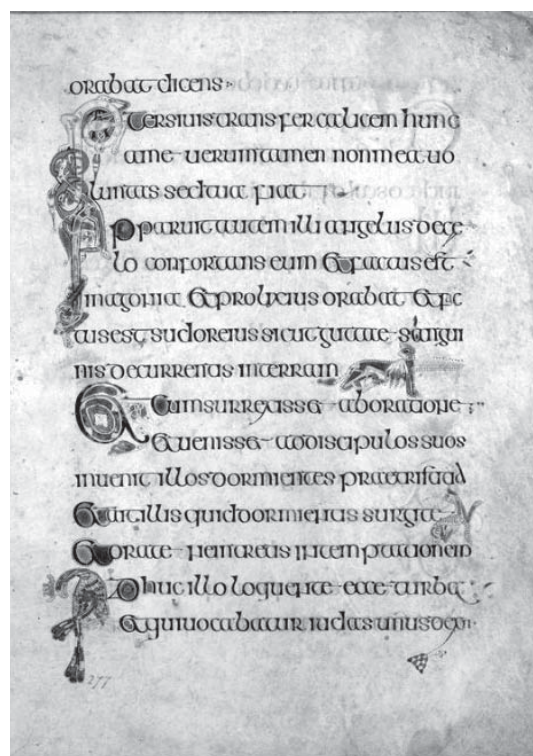 orabat dicens
Pater si uis transfer calicem hunc
a me uerumtamen non mea uo
luntas sed tua fiat
Apparuit autem illi angelus de cae
lo confortans eum et factus est
in agonia et prolixius orabat et fac
tus est sudor eius sicut gutae sangui
nis decurrentis in terram
Et cum surrexisset ab oratione
et uenisset ad discipulos suos
inuenit illos dormientes prae
et ait illis quid dormientis surgite
et orate ne intretis in temptationem
Adhuc illo loquente ecce turba
et qui uocabatur iudas unus de xii
277